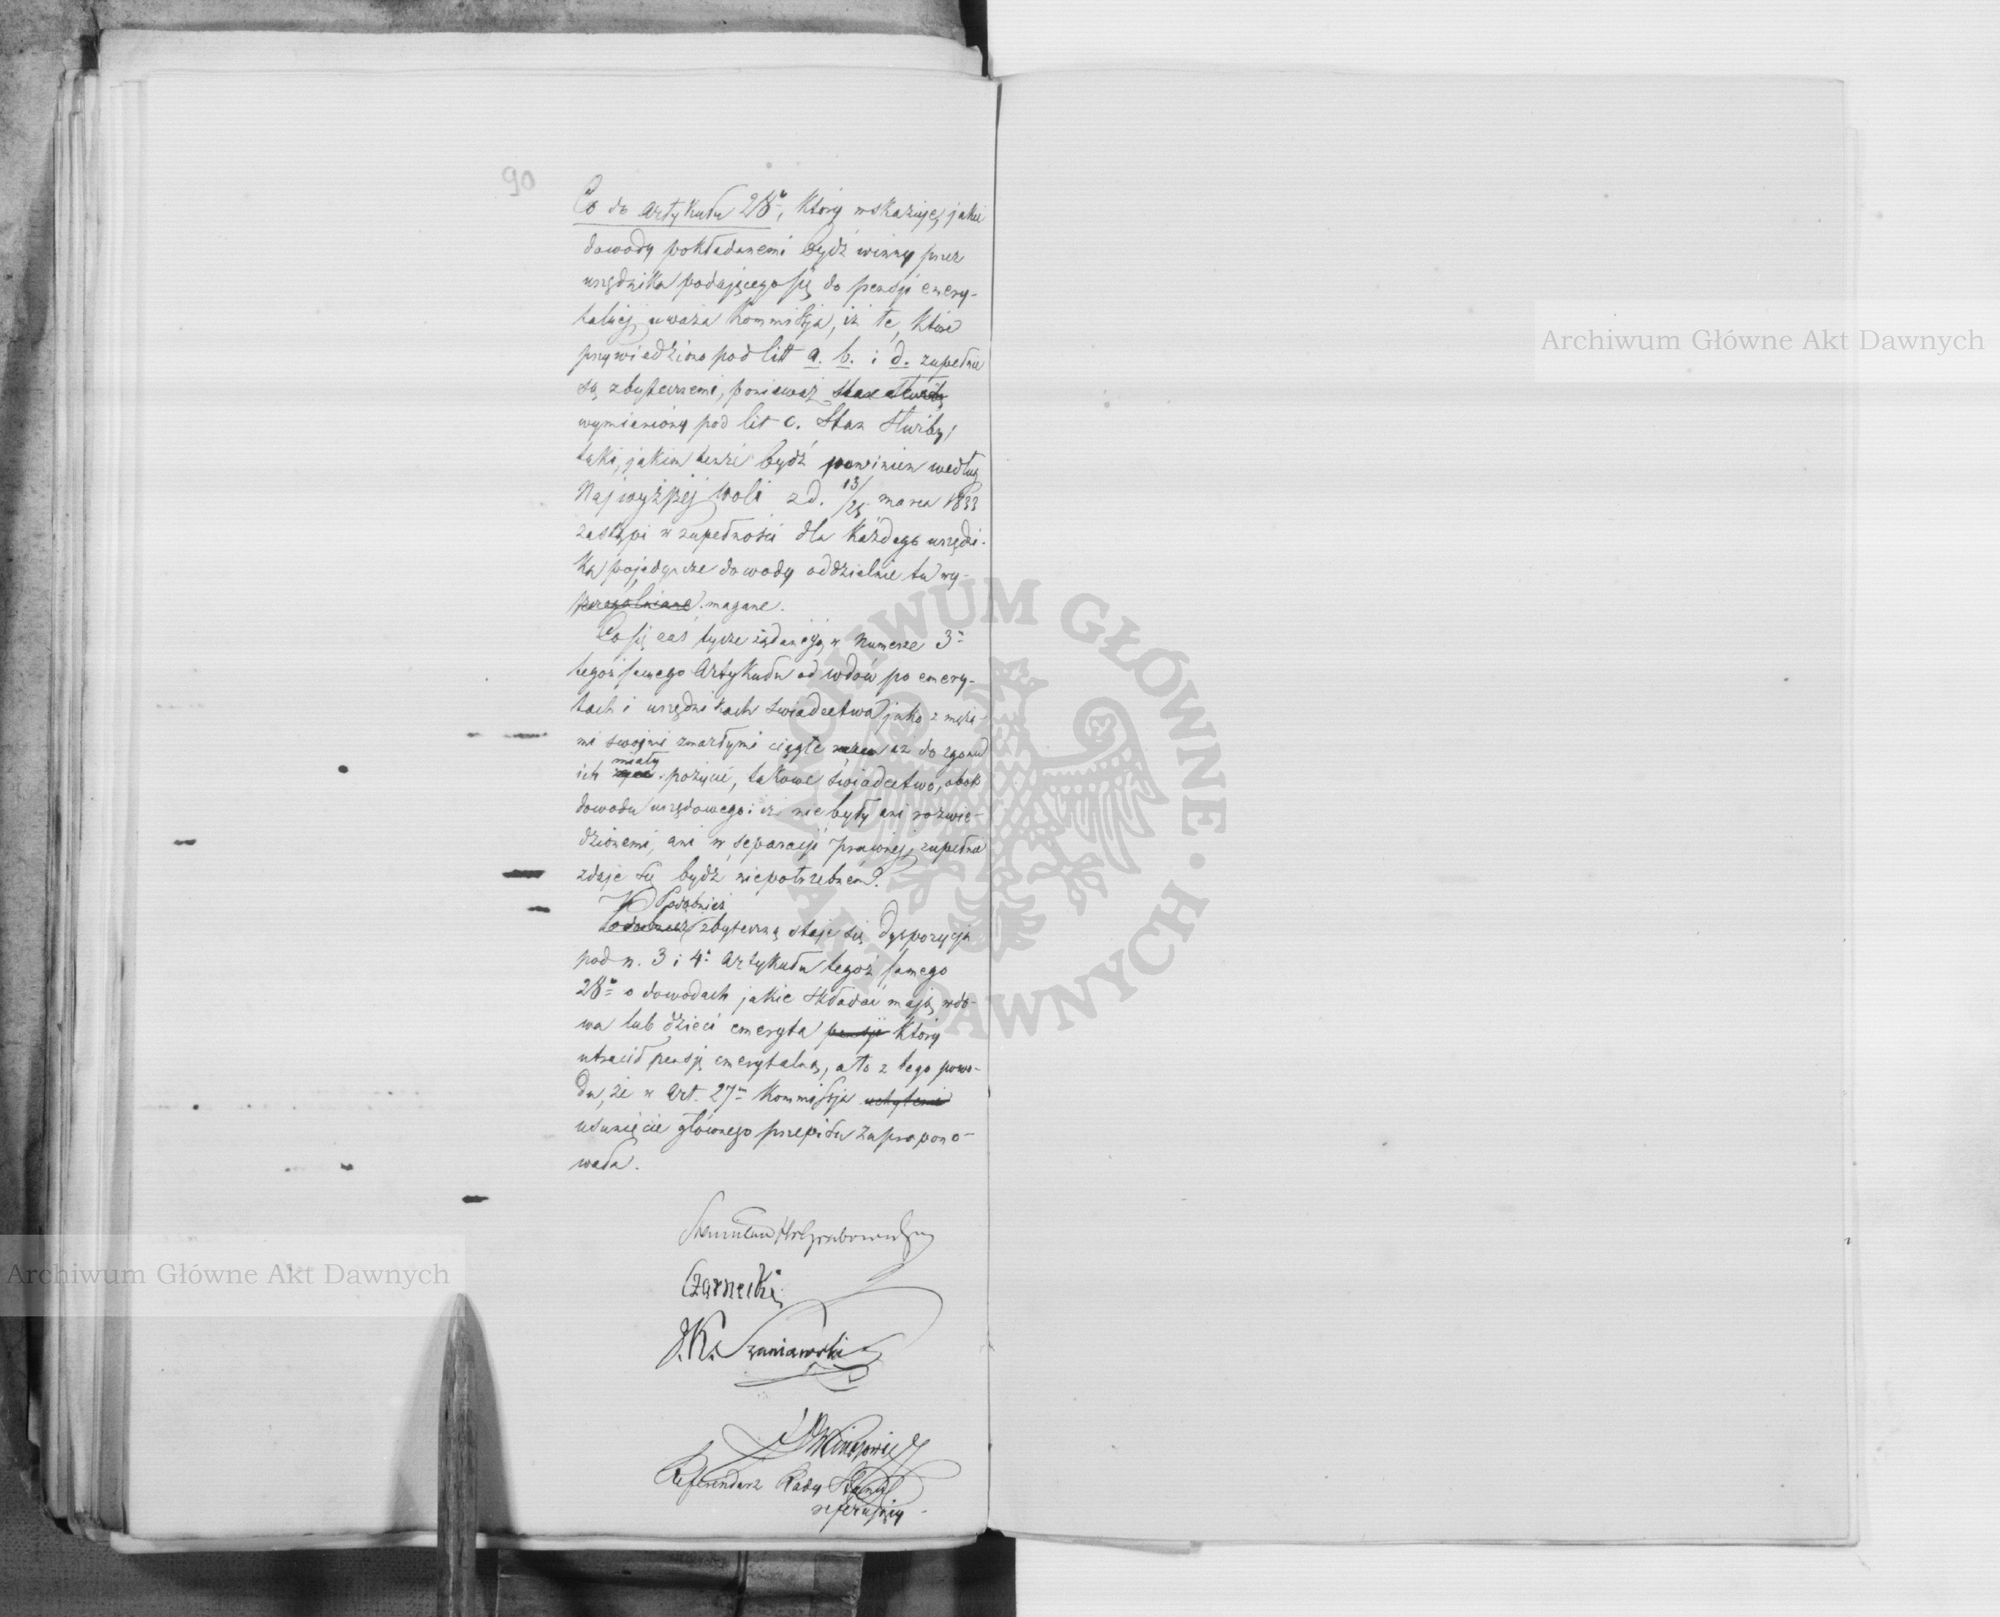 90
Co do Artykułu 28º, który wskazuje, jakie
dowody pokładanemi bydź winny przez
urzędnika podającego się do pensji emery-
talnej, uważa Kommissja, iż te, które
przywiedziono pod litt a. b. i d. zupełnie
są zbytecznemi, ponieważ Stan służby
wymieniony pod lit c. Stan służby,
taki, jakim tenże bydź powinien według
Najwyższej woli z d. 13/25 marca 1833
zastąpi w zupełności dla każdego urzędni-
ka pojedyncze dowody oddzielnie tu wy-
szczególniane magane.
Co się zaś tycze żądanego w Numerze 3º
tegoż samego Artykułu od wdów po emery-
tach i urzędnikach świadectwa, jako z męża-
mi swojmi zmarłymi ciągłe razem aż do zgonu
miały
ich pożycie, takowe świadectwo, obok
dowodu urzędowego iż nie były ani rozwie-
dzionemi, ani w separacji prawnej, zupełnie
zdaje się bydź niepotrzebnem.
Podobnież
Podobnież zbyteczną staje się dyspozycja
pod n. 3 i 4º Artykułu tegoż samego
28º o dowodach jakie składać mają wdo-
wa lub dzieci emeryta pensję który
utracił pensję emerytalną, a to z tego powo-
du, że w Art. 27m Kommissja uchylenie
usunięcie głównego przepisu zapropono-
wała.
Stanisław Hr Grabowski
Czarnecki
J. K. Szaniawski
Referendarz Rady Stanu
referujący
Archiwum Główne Akt Dawnych
Archiwum Główne Akt Dawnych
ARCHIWUM GŁÓWNE AKT DAWNYCH